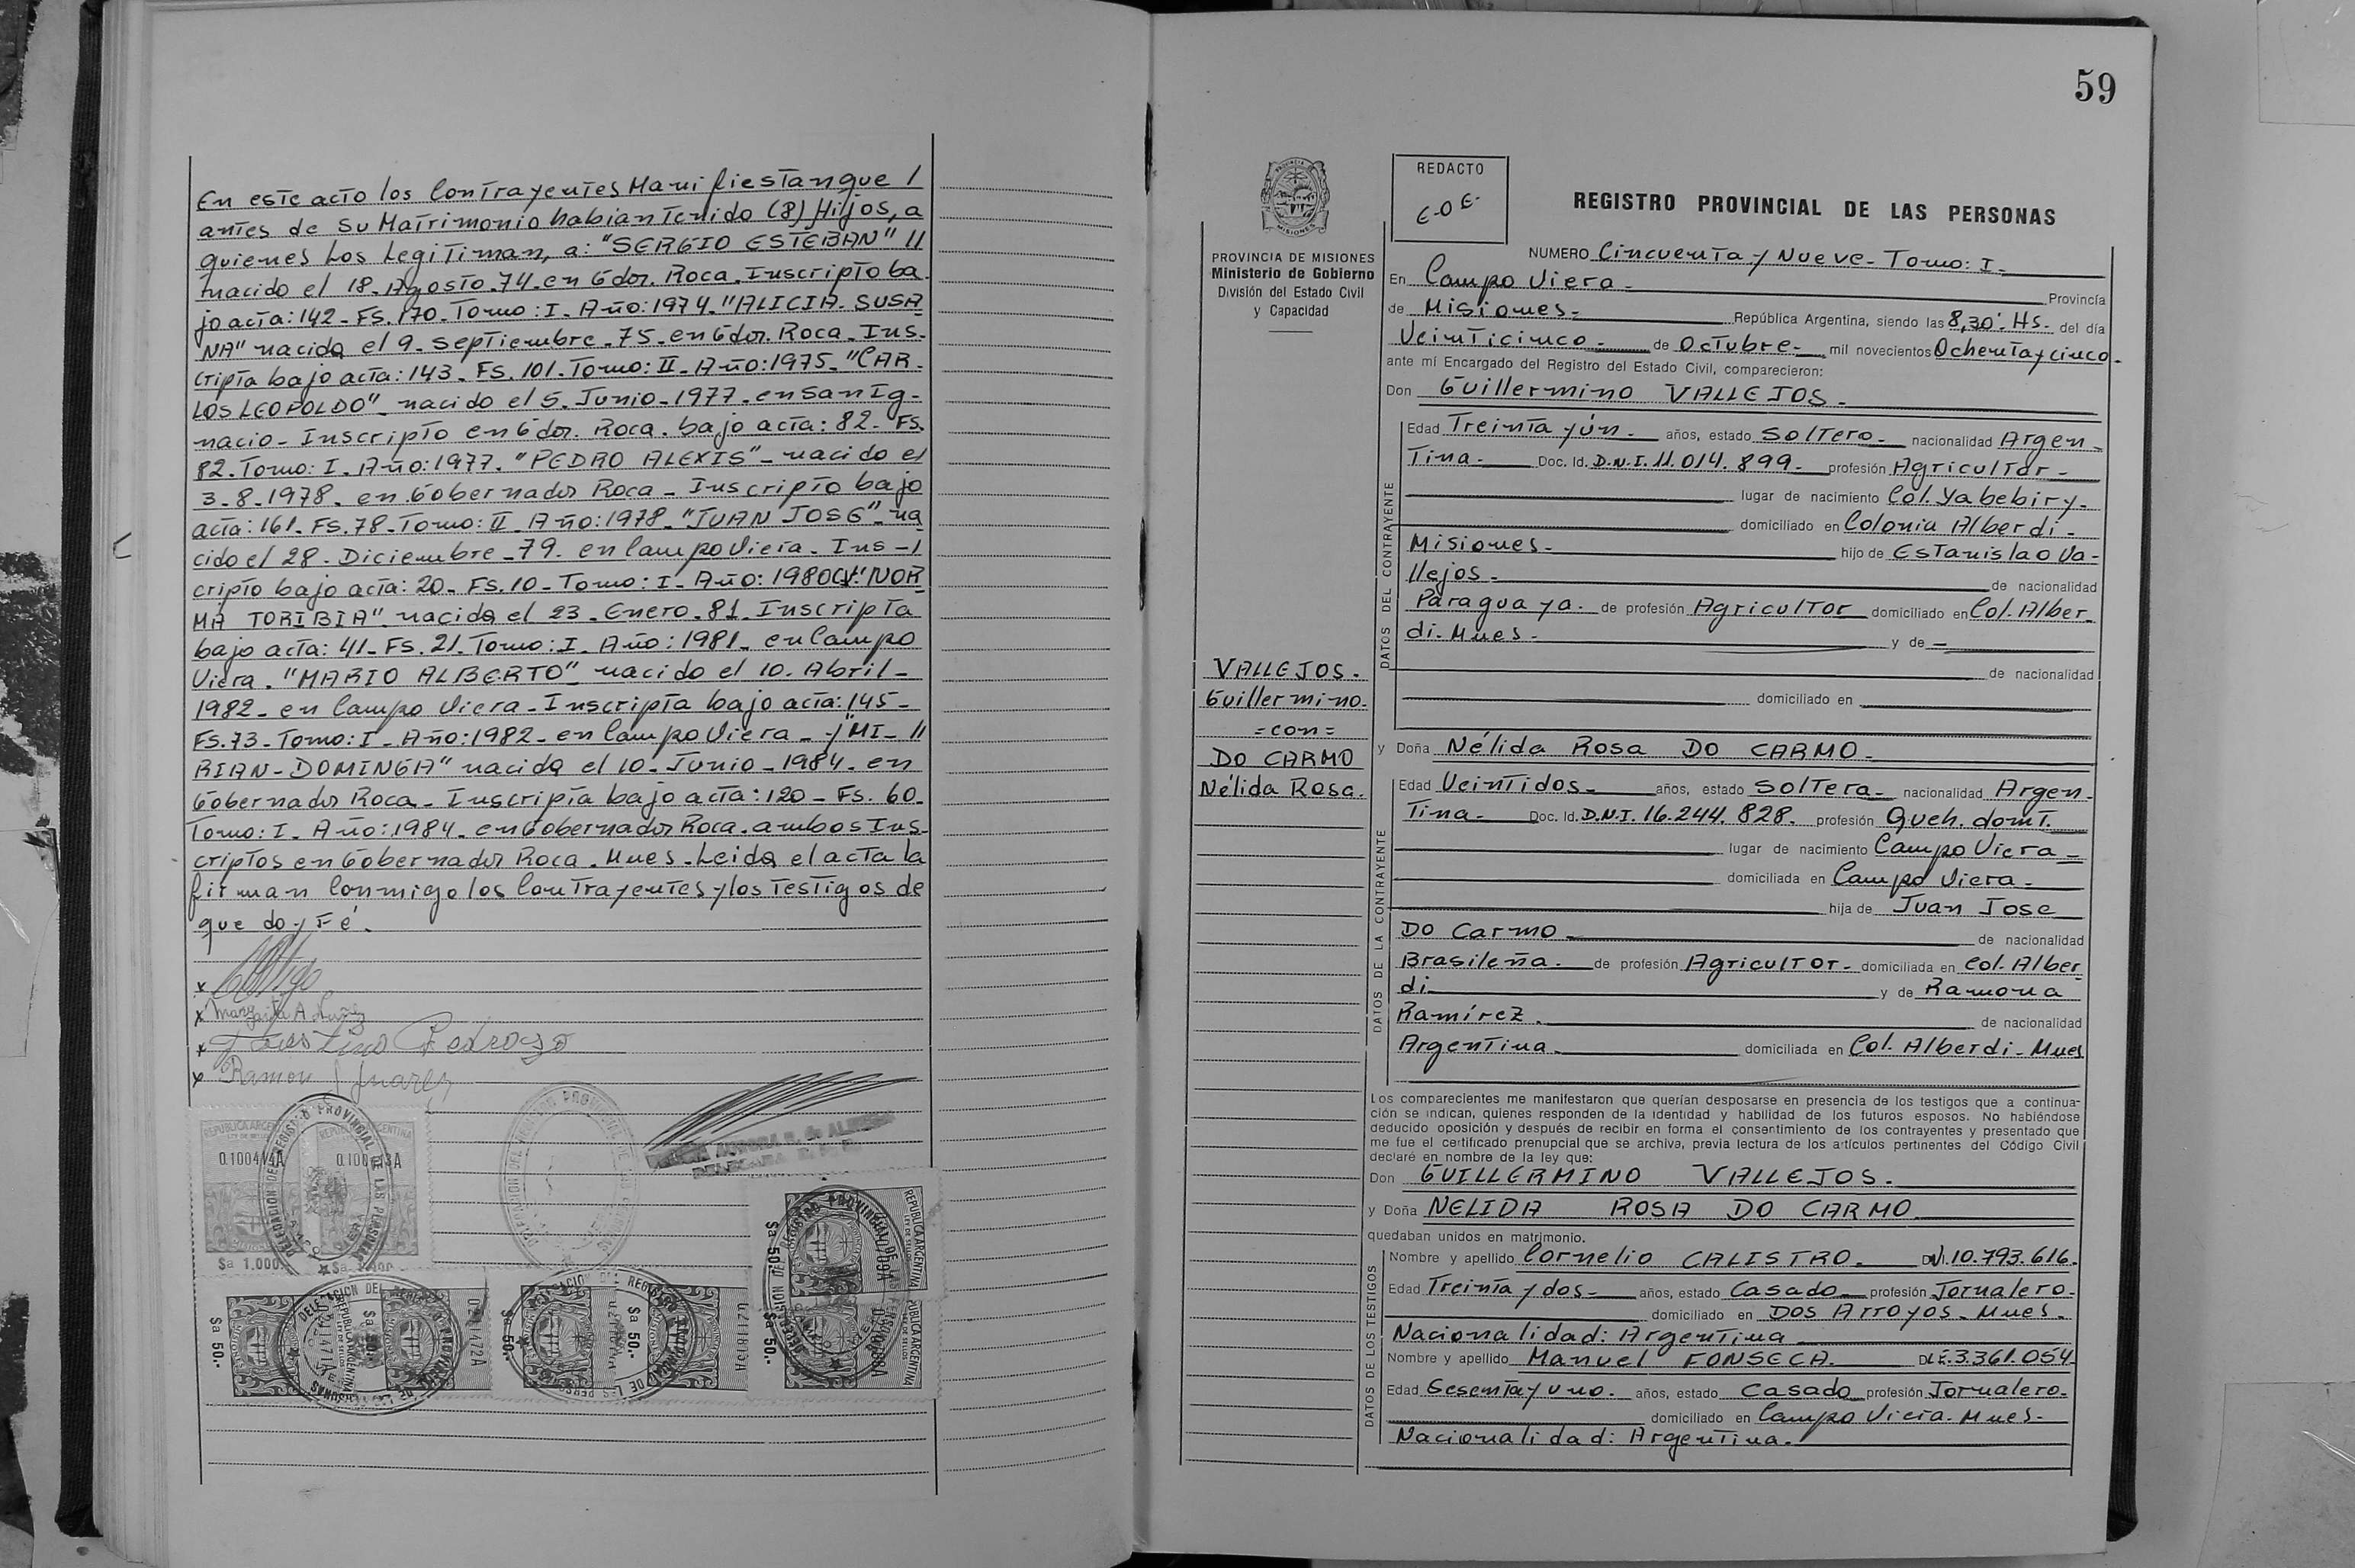 En este acto los Contrayentes Manifiestan que /
antes de Su Matrimonio habian Tenido (8) Hijos, a
quienes Los Legitiman, a: "SERGIO ESTEBAN" //
nacido el 18. Agosto. 74. en Gdor. Roca. Inscripto ba.
jo acta: 142 - FS. 170. Tomo: I. Año: 1974. "ALICIA. SUSA
NA" nacida el 9. Septiembre. 75. en Gdor. Roca. Ins.
cripta bajo acta: 143. FS. 101. Tomo: II. Año: 1975. "CAR.
LOS LEOPOLDO" nacido el 5. Junio. 1977. en San Ig-
nacio - Inscripto en Gdor. Roca. bajo acta: 82. FS.
82. Tomo: I. Año: 1977. "PEDRO ALEXIS" - nacido el
3-8-1978. en Gobernador Roca - Inscripto bajo
acta: 161. FS. 78. Tomo: II. Año: 1978. "JUAN JOSE" - na
cido el 28. Diciembre. 79. en Campo Viera. Ins - /
cripto bajo acta: 20 - FS. 10 - Tomo: I - Año: 1980 CV. "NOR
MA TORIBIA" nacida el 23. Enero. 81. Inscripta
bajo acta: 41 - FS. 21. Tomo: I. Año: 1981 - en Campo
Viera. "MARIO ALBERTO" nacido el 10. Abril -
1982 - en Campo Viera - Inscripta bajo acta: 145 -
FS. 73 - Tomo: I - Año: 1982 - en Campo Viera - y "MI - //
RIAN - DOMINGA" nacida el 10 - Junio - 1984. en
Gobernador Roca - Inscripta bajo acta: 120 - FS. 60.
Tomo: I. Año: 1984. en Gobernador Roca. ambos Ins.
criptos en Gobernador Roca. Mnes. Leida el acta la
firman Conmigo los Contrayentes y los Testigos de
que doy Fé.
x
x Margarita A Nuñez
x Faustino Pedrozo
x Ramon J Juarez
REPUBLICA ARGENTINA
0.100414A
$a 1.000.
DELEGACION DEL REGISTRO PROVINCIAL DE LAS PERSONAS
$a 50.-
$a 50.-
$a 50.-
$a 50.-
$a 50.-
REPUBLICA ARGENTINA
LEY DE SELLOS
59
PROVINCIA DE MISIONES
Ministerio de Gobierno
División del Estado Civil
y Capacidad
REDACTO
E.O.E.
REGISTRO PROVINCIAL DE LAS PERSONAS
NUMERO Cincuenta y Nueve - Tomo: I -
En Campo Viera - Provincia
de Misiones - República Argentina, siendo las 8,30' Hs. del día
Veinticinco - de Octubre - mil novecientos Ochenta y cinco -
ante mí Encargado del Registro del Estado Civil, comparecieron:
Don Guillermino VALLEJOS -
VALLEJOS.
Guillermino.
= con =
DO CARMO
Nélida Rosa.
DATOS DEL CONTRAYENTE
Edad Treinta y ún - años, estado Soltero - nacionalidad Argen -
Tina - Doc. Id. D.N.I. 11.014.899 - profesión Agricultor -
lugar de nacimiento Col. Yabebiry -
domiciliado en Colonia Alberdi -
Misiones - hijo de Estanislao Va -
llejos - de nacionalidad
Paraguaya. de profesión Agricultor domiciliado en Col. Alber -
di - Mnes - y de -
de nacionalidad
domiciliado en
y Doña Nélida Rosa DO CARMO -
DATOS DE LA CONTRAYENTE
Edad Veintidos - años, estado Soltera - nacionalidad Argen -
Tina - Doc. Id. D.N.I. 16.244.828. profesión Queh. domt.
lugar de nacimiento Campo Viera -
domiciliada en Campo Viera -
hija de Juan Jose
Do Carmo - de nacionalidad
Brasileña. de profesión Agricultor - domiciliada en Col. Alber
di - y de Ramona
Ramírez. de nacionalidad
Argentina - domiciliada en Col. Alberdi - Mnes
Los comparecientes me manifestaron que querían desposarse en presencia de los testigos que a continua-
ción se indican, quienes responden de la identidad y habilidad de los futuros esposos. No habiéndose
deducido oposición y después de recibir en forma el consentimiento de los contrayentes y presentado que
me fue el certificado prenupcial que se archiva, previa lectura de los artículos pertinentes del Código Civil
declaré en nombre de la ley que:
Don GUILLERMINO VALLEJOS -
y Doña NELIDA ROSA DO CARMO
quedaban unidos en matrimonio.
DATOS DE LOS TESTIGOS
Nombre y apellido Cornelio CALISTRO. DNI. 10.793.616.
Edad Treinta y dos - años, estado Casado profesión Jornalero -
domiciliado en Dos Arroyos - Mnes -
Nacionalidad: Argentina
Nombre y apellido Manuel FONSECA. DLE. 3.361.054
Edad Sesenta y uno. años, estado Casado profesión Jornalero -
domiciliado en Campo Viera - Mnes -
Nacionalidad: Argentina.